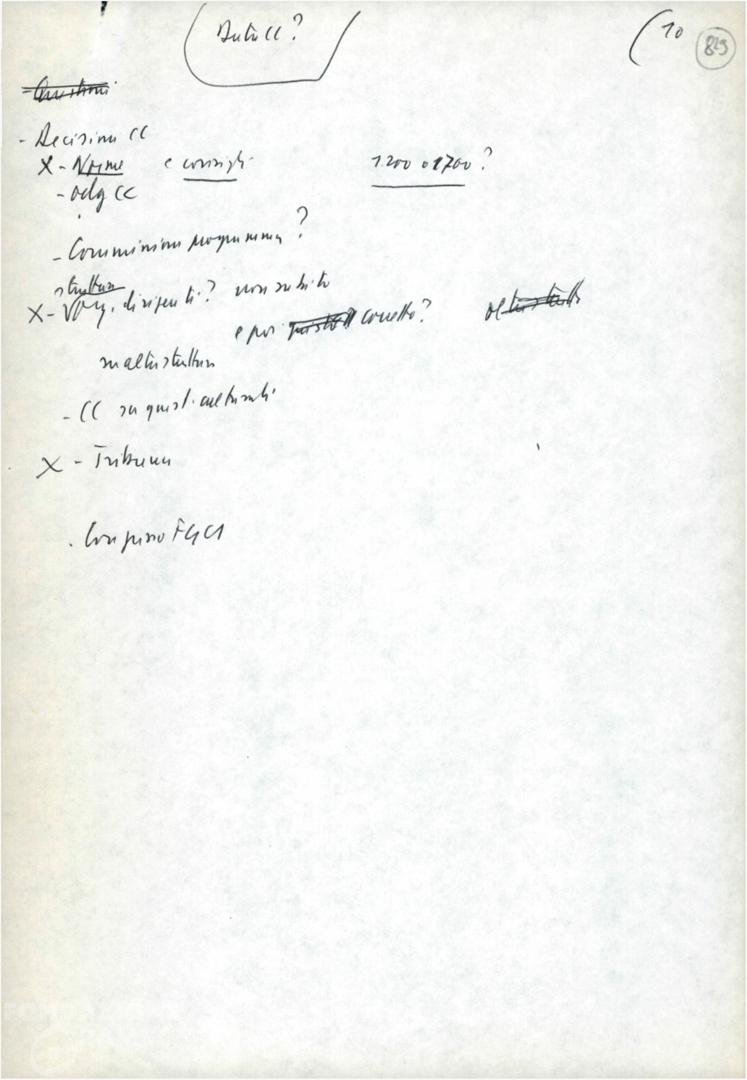 Data CC?
(10
829
Questioni
- Decisioni CC
X - Norme e consigli 1.200 o 1700?
- odg CC
- Commissioni programma?
struttura
X - dirigenti? non subito
e poi corretto?
su altre strutture
- CC su quest. culturali
X - Tribuna
. Congresso FGCI